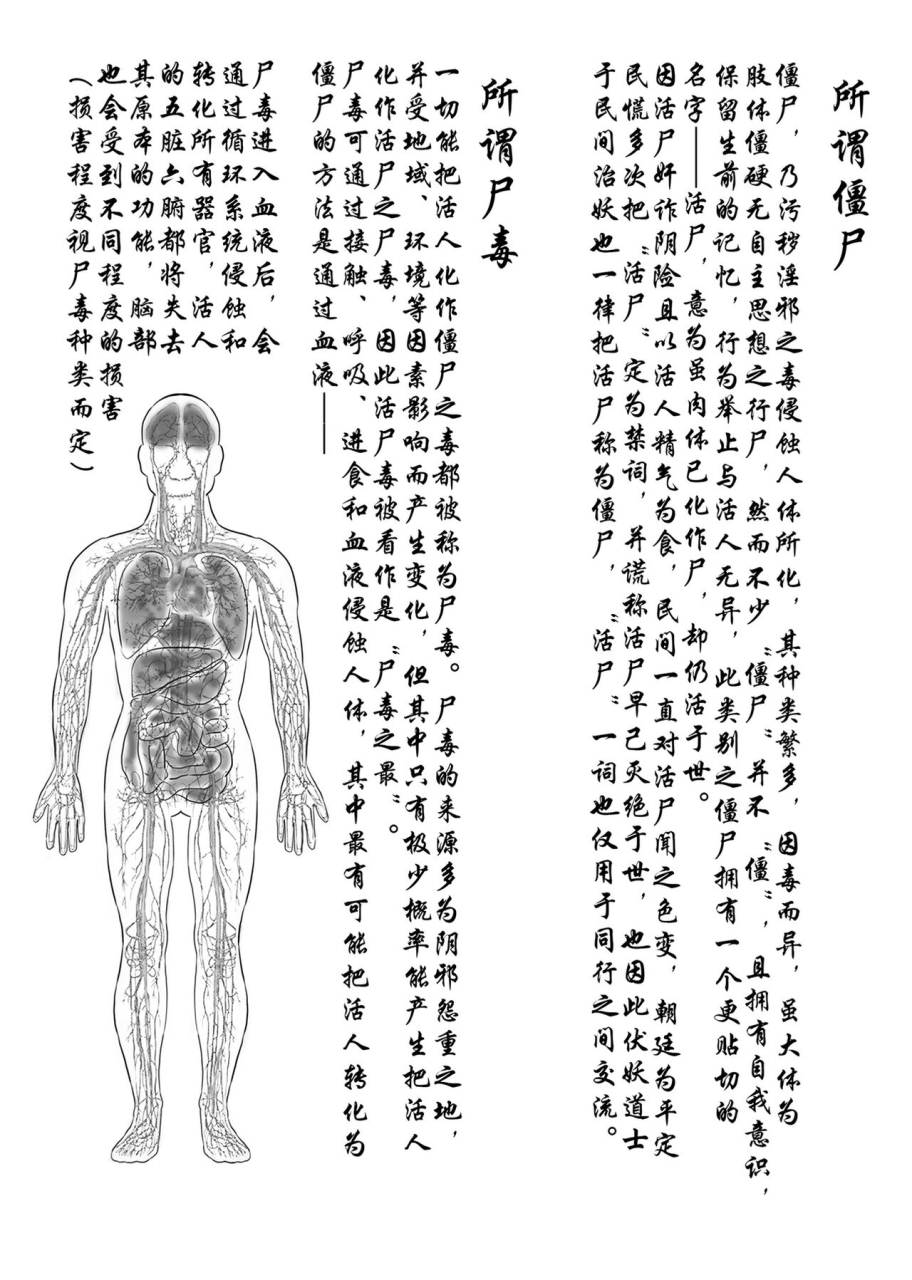 所谓僵尸
僵尸，乃污秽淫邪之毒侵蚀人体所化，其种类繁多，因毒而异，虽大体为
肢体僵硬无自主思想之行尸，然而不少“僵尸”并不“僵”，且拥有自我意识，
保留生前的记忆，行为举止与活人无异，此类别之僵尸拥有一个更贴切的
名字——活尸，意为虽肉体已化作尸，却仍活于世。
因活尸奸诈阴险且以活人精气为食，民间一直对活尸闻之色变，朝廷为平定
民慌多次把“活尸”定为禁词，并谎称活尸早已灭绝于世，也因此伏妖道士
于民间治妖也一律把活尸称为僵尸，“活尸”一词也仅用于同行之间交流。
所谓尸毒
一切能把活人化作僵尸之毒都被称为尸毒。尸毒的来源多为阴邪怨重之地，
并受地域、环境等因素影响而产生变化，但其中只有极少概率能产生把活人
化作活尸之尸毒，因此活尸毒被看作是“尸毒之最”。
尸毒可通过接触、呼吸、进食和血液侵蚀人体，其中最有可能把活人转化为
僵尸的方法是通过血液——
尸毒进入血液后，会
通过循环系统侵蚀和
转化所有器官，活人
的五脏六腑都将失去
其原本的功能，脑部
也会受到不同程度的损害
（损害程度视尸毒种类而定）